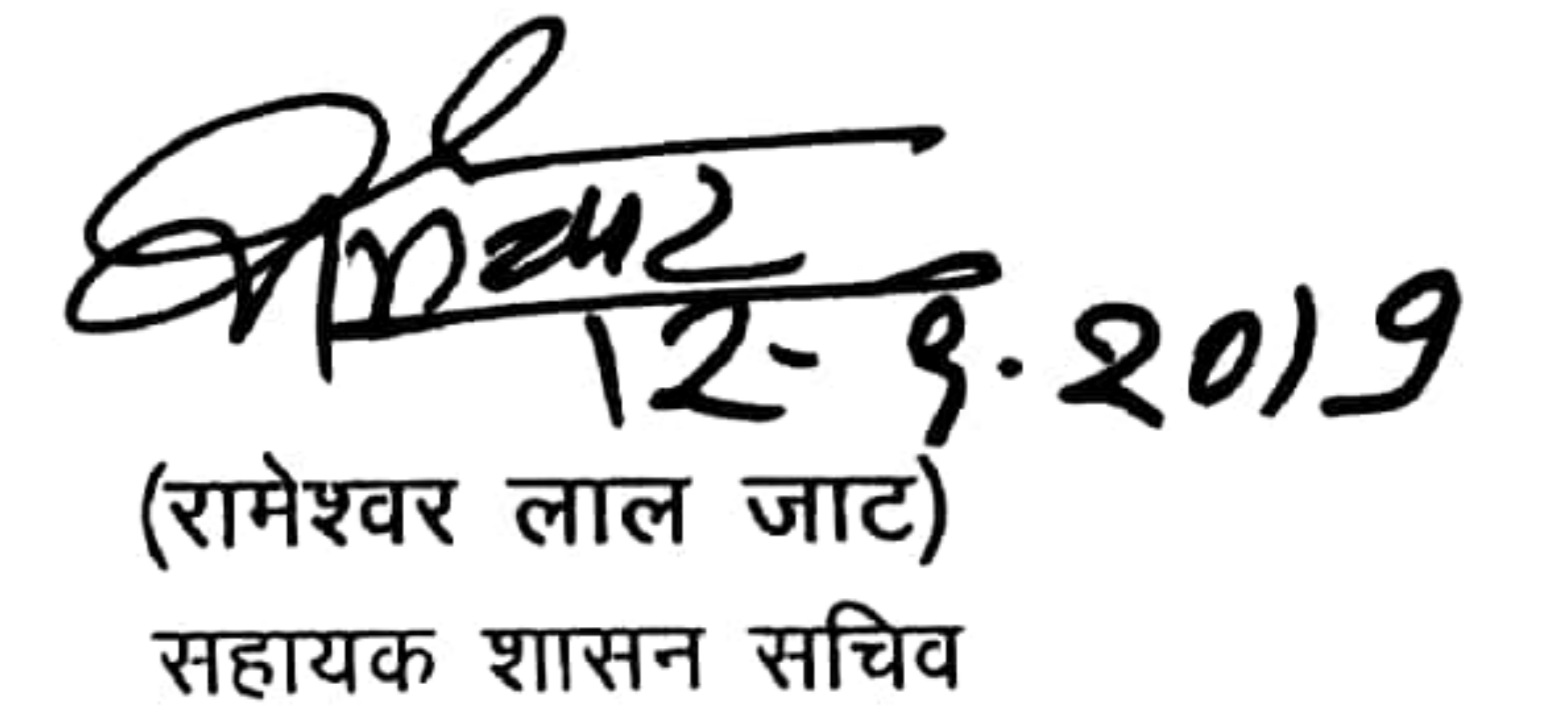 12-9.2019
(रामेश्वर लाल जाट)
सहायक शासन सचिव